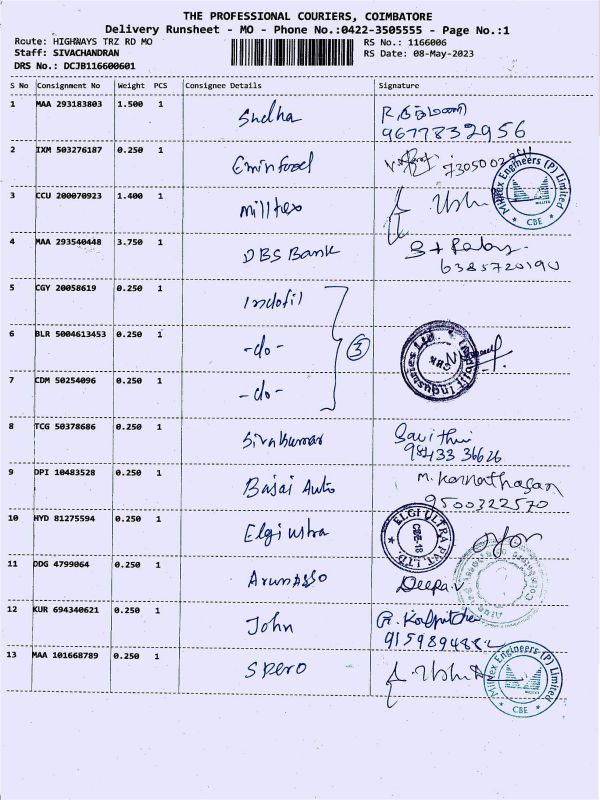 THE PROFESSIONAL COURIERS, COIMBATORE
Delivery Runsheet - MO - Phone No.:0422-3505555 - Page No.:1
Route: HIGHWAYS TRZ RD MO
RS No.: 1166006
Staff: SIVACHANDRAN
RS Date: 08-May-2023
DRS No.: DCJB116600601
S No Consignment No Weight PCS Consignee Details Signature
1 MAA 293183803 1.500 1 Sneha
9677832956
2 IXM 503276187 0.250 1 Eminfood
3 CCU 200070923 1.400 1 Milltex
Milltex Engineers (P) Limited
★ CBE ★
4 MAA 293540448 3.750 1 DBS Bank
6385720190
5 CGY 20058619 0.250 1 Indofil
6 BLR 5004613453 0.250 1 -do- 3
7 CDM 50254096 0.250 1 -do-
8 TCG 50378686 0.250 1 Sivakumar Savithri
98433 36626
9 DPI 10483528 0.250 1 Bajai Auto
9500322570
10 HYD 81275594 0.250 1 Elgi ultra
ELGI ULTRA PVT. LTD.
CBE-18
11 DDG 4799064 0.250 1 Arunasso Deepa.V
12 KUR 694340621 0.250 1 John
9159894882
13 MAA 101668789 0.250 1 Spero
Milltex Engineers (P) Limited
★ CBE ★